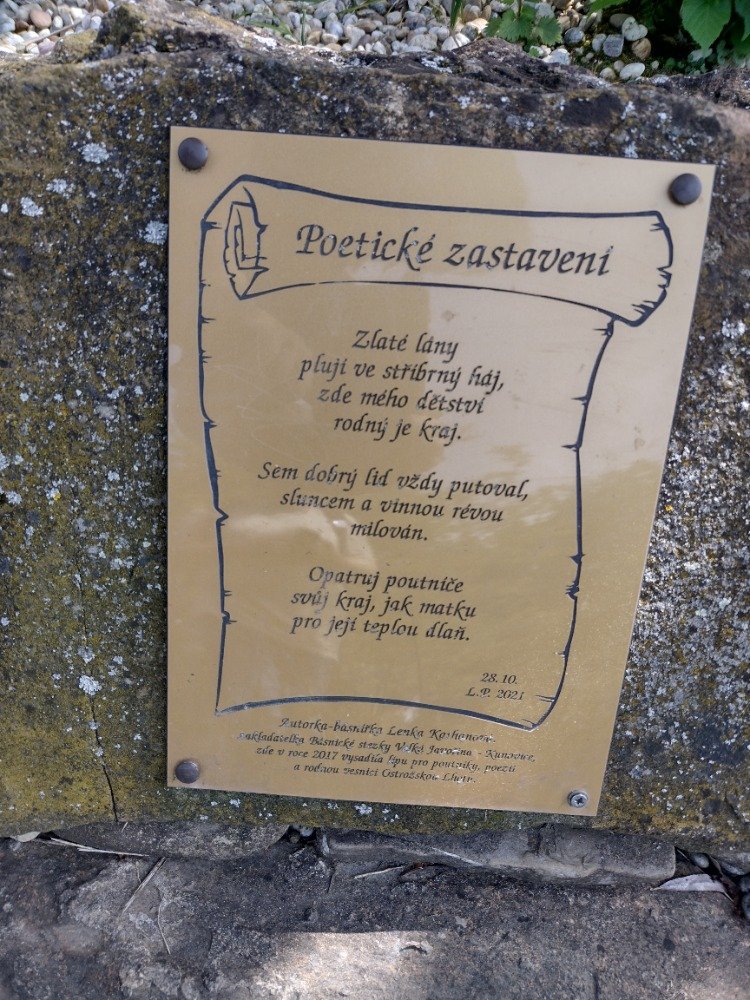 Poetické zastavení
Zlaté lány
plují ve stříbrný háj,
zde mého dětství
rodný je kraj.
Sem dobrý lid vždy putoval,
sluncem a vinnou révou
milován.
Opatruj poutníče
svůj kraj, jak matku
pro její teplou dlaň.
28.10.
L.P. 2021
Autorka-básnířka Lenka
zakladatelka Básnické stezky Velká Javořina - Kunovice,
zde v roce 2017 vysadila lípu pro poutníky, poezii
a rodnou vesnici Ostrožskou Lhotu.